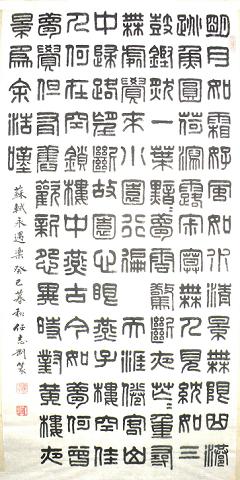 明月如霜好風如水清景無限曲港
跳魚圓荷瀉露寂寞無人見紞如三
鼓鏗然一葉黯〻夢雲驚斷夜茫〻重尋
無處覺來小園行遍天涯倦客山
中歸路望斷故園心眼燕子樓空佳
人何在空鎖樓中燕古今如夢何曾
夢覺但有舊歡新怨異時對黃樓夜
景為余浩嘆
蘇軾永遇樂 癸巳暮秋 任志剛篆